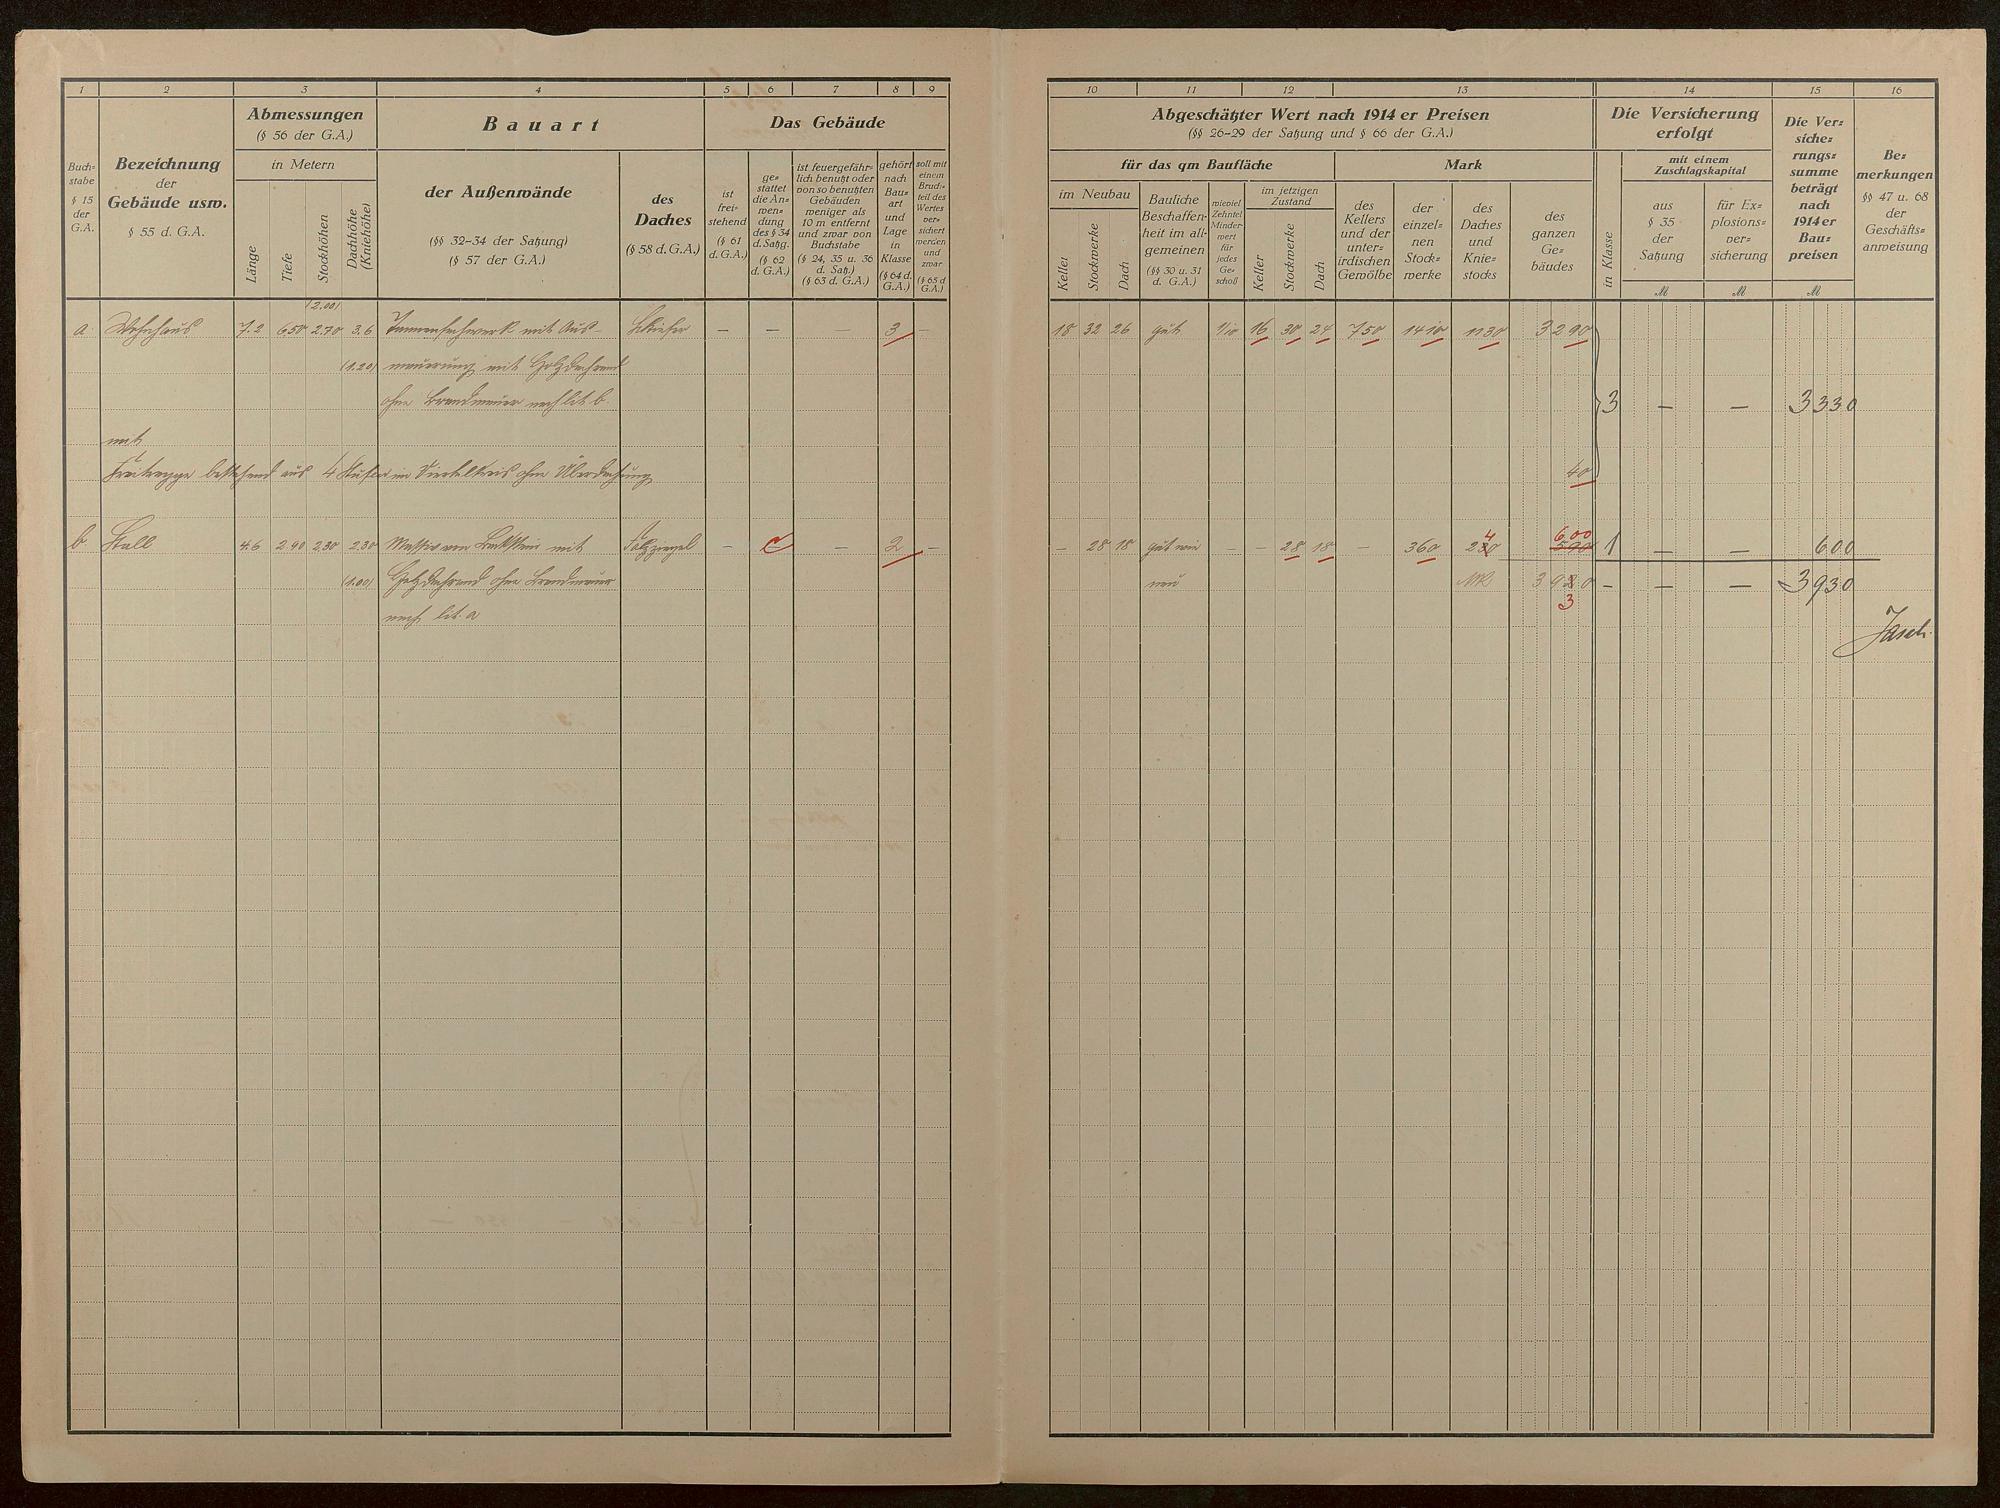 1 2 3 4 5 6 7 8 9
Buch=
stabe
§ 15
der
G.A.
Bezeichnung
der
Gebäude usw.
§ 55 d. G.A.
Abmessungen
(§ 56 der G.A.)
in Metern
Länge
Tiefe
Stockhöhen
Dachhöhe
(Kniehöhe)
Bauart
der Außenwände
(§§ 32–34 der Satzung)
(§ 57 der G.A.)
des
Daches
(§ 58 d. G.A.)
Das Gebäude
ist
frei=
stehend
(§ 61
d. G.A.)
ge=
stattet
die An=
wen=
dung
des § 34
d. Satzg.
(§ 62
d. G.A.)
ist feuergefähr=
lich benutzt oder
von so benutzten
Gebäuden
weniger als
10 m entfernt
und zwar von
Buchstabe
(§ 24, 35 u. 36
d. Satz.)
(§ 63 d. G.A.)
gehört
nach
Bau=
art
und
Lage
in
Klasse
(§ 64 d.
G.A.)
soll mit
einem
Bruch=
teil des
Wertes
ver=
sichert
werden
und
zwar
(§ 65 d
G.A.)
(2.00)
a. Wohnhaus 7.2 6.50 2.70 3.6 Tannenfachwerk mit Aus- Schiefer — — 3 —
(1.20) mauerung mit Holzdachrand
ohne Brandmauer nach lit. b.
mit
Freitreppe bestehend aus 4 Stufen im Viertelkreis ohne Überdachung
b Stall 4.6 2.90 2.30 2.30 Massiv von Backstein mit Falzziegel — — 2 —
(1.00) Holzdachrand ohne Brandmauer
nach lit. a
10 11 12 13 14 15 16
Abgeschätzter Wert nach 1914 er Preisen
(§§ 26–29 der Satzung und § 66 der G.A.)
für das qm Baufläche
im Neubau
Keller
Stockwerke
Dach
Bauliche
Beschaffen=
heit im all=
gemeinen
(§§ 30 u. 31
d. G.A.)
wieviel
Zehntel
Minder=
wert
für
jedes
Ge=
schoß
im jetzigen
Zustand
Keller
Stockwerke
Dach
Mark
des
Kellers
und der
unter=
irdischen
Gewölbe
der
einzel=
nen
Stock=
werke
des
Daches
und
Knie=
stocks
des
ganzen
Ge=
bäudes
Die Versicherung
erfolgt
in Klasse
mit einem
Zuschlagskapital
aus
§ 35
der
Satzung
M
für Ex=
plosions=
ver=
sicherung
M
Die Ver=
siche=
rungs=
summe
beträgt
nach
1914er
Bau=
preisen
M
Be=
merkungen
§§ 47 u. 68
der
Geschäfts=
anweisung
18 32 26 gut 1/10 16 30 24 750 1410 1130 3290
3 — — 3330
40
4 600
— 28 18 gut wie — — 28 18 — 360 230 590 1 — — 600
neu MK 3920 — — — 3930
3
Jasch.